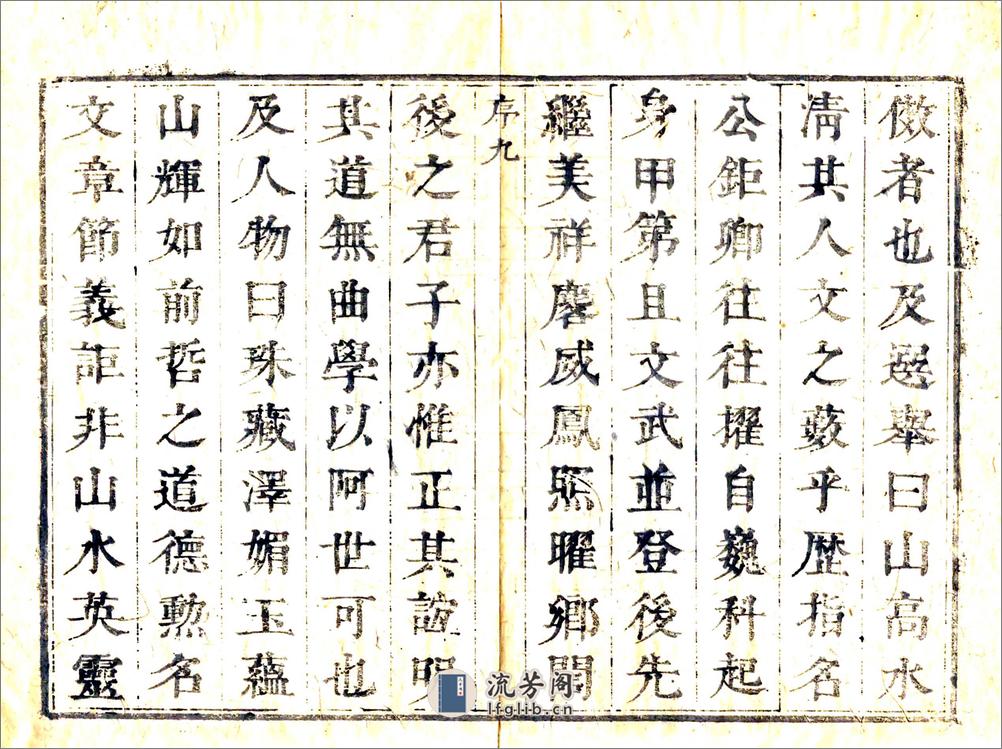 傚者也及選舉曰山高水
清其人文之藪乎歴指名
公鉅卿往往擢自巍科起
身甲第且文武並登後先
繼美祥麐威鳳照曜鄉閭
序九
後之君子亦惟正其誼明
其道無曲學以阿世可也
及人物曰珠藏澤媚玉蘊
山輝如前哲之道德勲名
文章節義詎非山水英靈
流芳阁
lfglib.cn